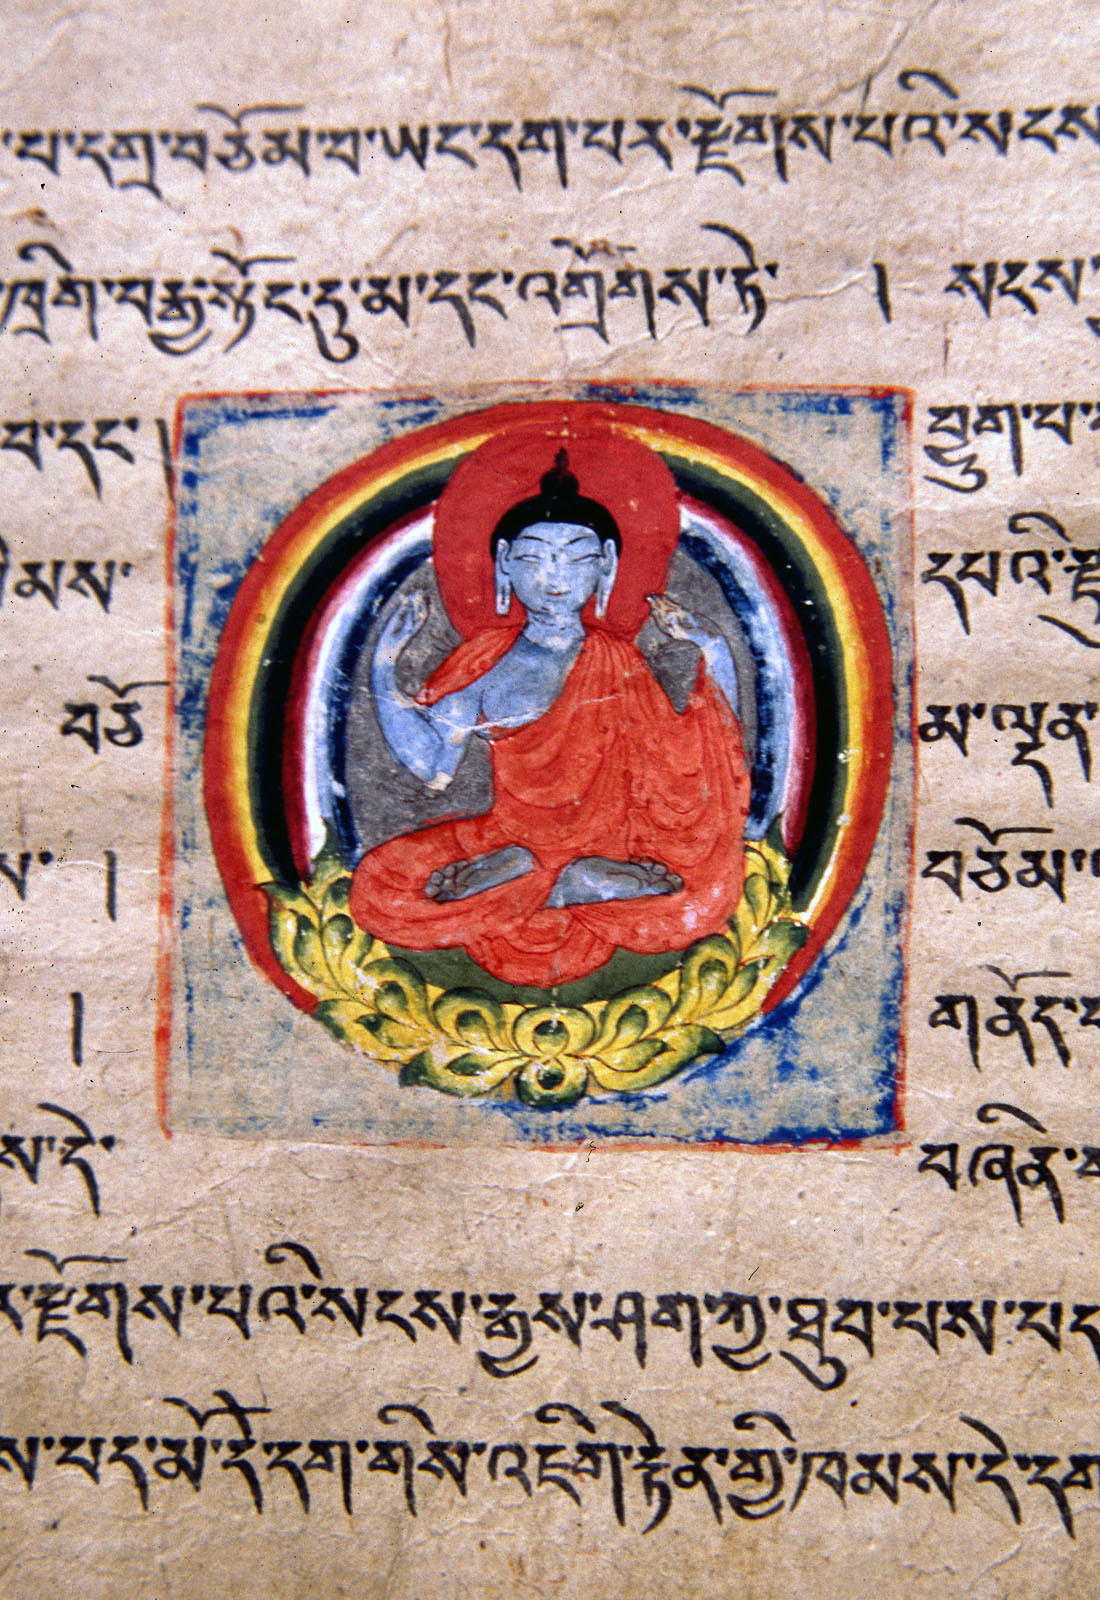 པ་དགྲ་བཅོམ་བ་ཡང་དག་པར་རྫོགས་པའི་སངས
ཁྲིག་བརྒྱ་སྟོང་དུ་མ་དང་འགྲོགས་ཏེ་ ། སངས་
བ་དང་ །
བྲུག་པ་
མས་
དཔའི་
བཅོ
མ་ལྡན་
།
བཅོམ་
།
གནོད་
ས་དེ་
བཞིན་
ར་རྫོགས་པའི་སངས་རྒྱས་ཤག་ཀྱ་ཐུབ་པས་པད
ས་པད་མོ་དེ་དག་གིས་འཇིག་རྟེན་གྱི་ཁམས་དེ་དག